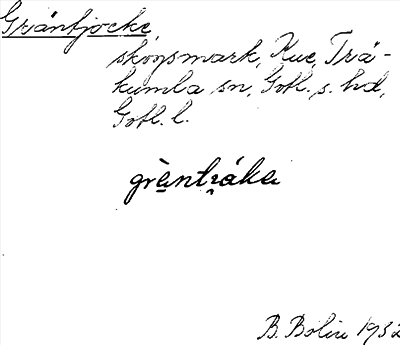 Gräntjocke,
skogsmark, Kue, Trä-
kumla sn, Gotl. s. hd,
Gotl. l.
gràntráka
B. Bolin 1932